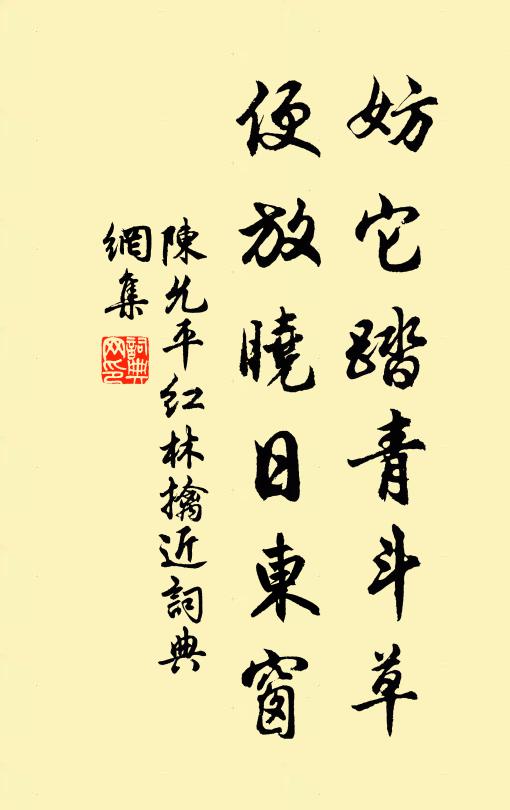 妨它踏青斗草
便放曉日東窗
陳允平紅林擒近詞典
網集
詞典網印